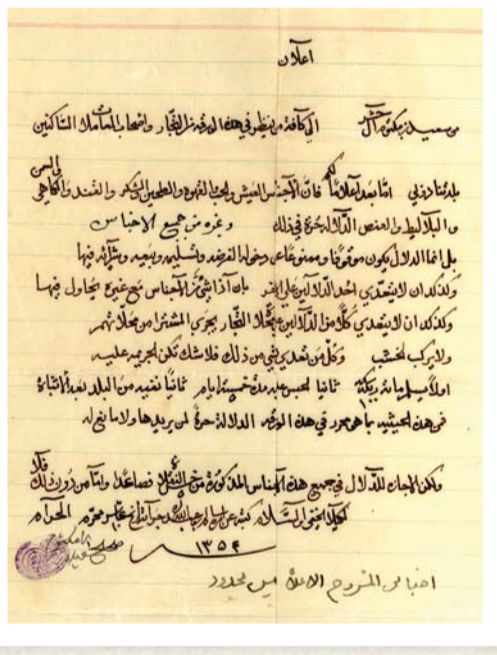 اعلان
من سعيد بن مكتوم آل حشر الى كافة من ينظر في هذه الورقة من التجار واصحاب المعاملات الساكنين
بلدتنا دبي اما بعد اعلاما لكم فان الاجناس العيش والحب القهوه والطحين والسكر والقند والكاهي والسمن
والبلاليط والعنص الدلاله حرة في ذلك وغيره من جميع الاجناس
بل انما الدلال يكون موقوفا وممنوعا عن دخوله الفرضه وتسليمه وبيعه وشرائه فيها
وكذلك ان لا يتعدى احد الدلالين على الاخر بان اذا شيء من الاجناس مع غيره يحاول فيها
وكذلك ان لا يتعدى كلا من الدلالين على محلات التجار يجري المشترا من محلاتهم
ولا يركب لخشب وكل من تعدى شي من ذلك فلا شك تكن الجريمه عليه
اولا ميه ربيه ثانيا لحبس عليه مدة خمسة ايام ثالثا نفيه من البلد بعد اثباته
في هذه الحيثيه بما هو محرر في هذه الورقه الدلالة حرة لمن يريدها ولا مانع له
ولكن الاجازه للدلال في جميع هذه الاجناس المذكورة من فصاعدا واما من دون ذلك فلا
لكيلا يخفى والسلام محرم الحرام
١٣٥٤
الاعلان ليس محدود